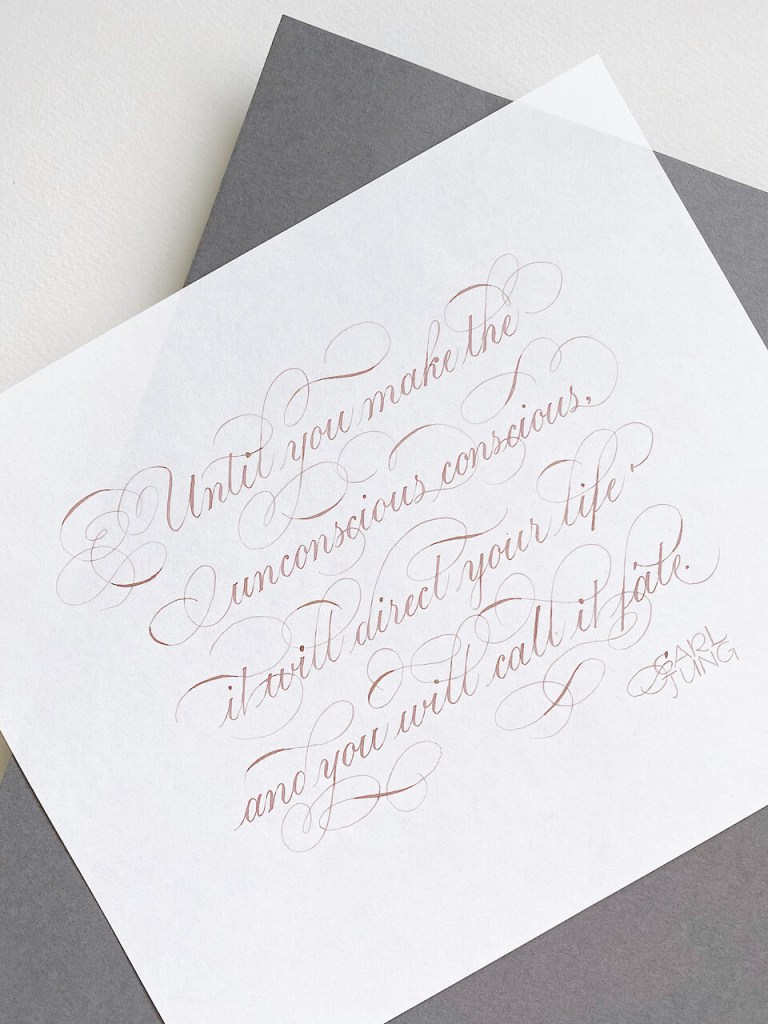 Until you make the
unconscious conscious,
it will direct your life
and you will call it fate.
CARL
JUNG